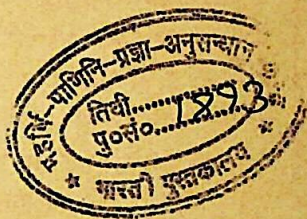 महर्षि-पाणिनि-प्रज्ञा-अनुसन्धान
तिथी..............
पु०सं०....1893
* भारती पुस्तकालय *